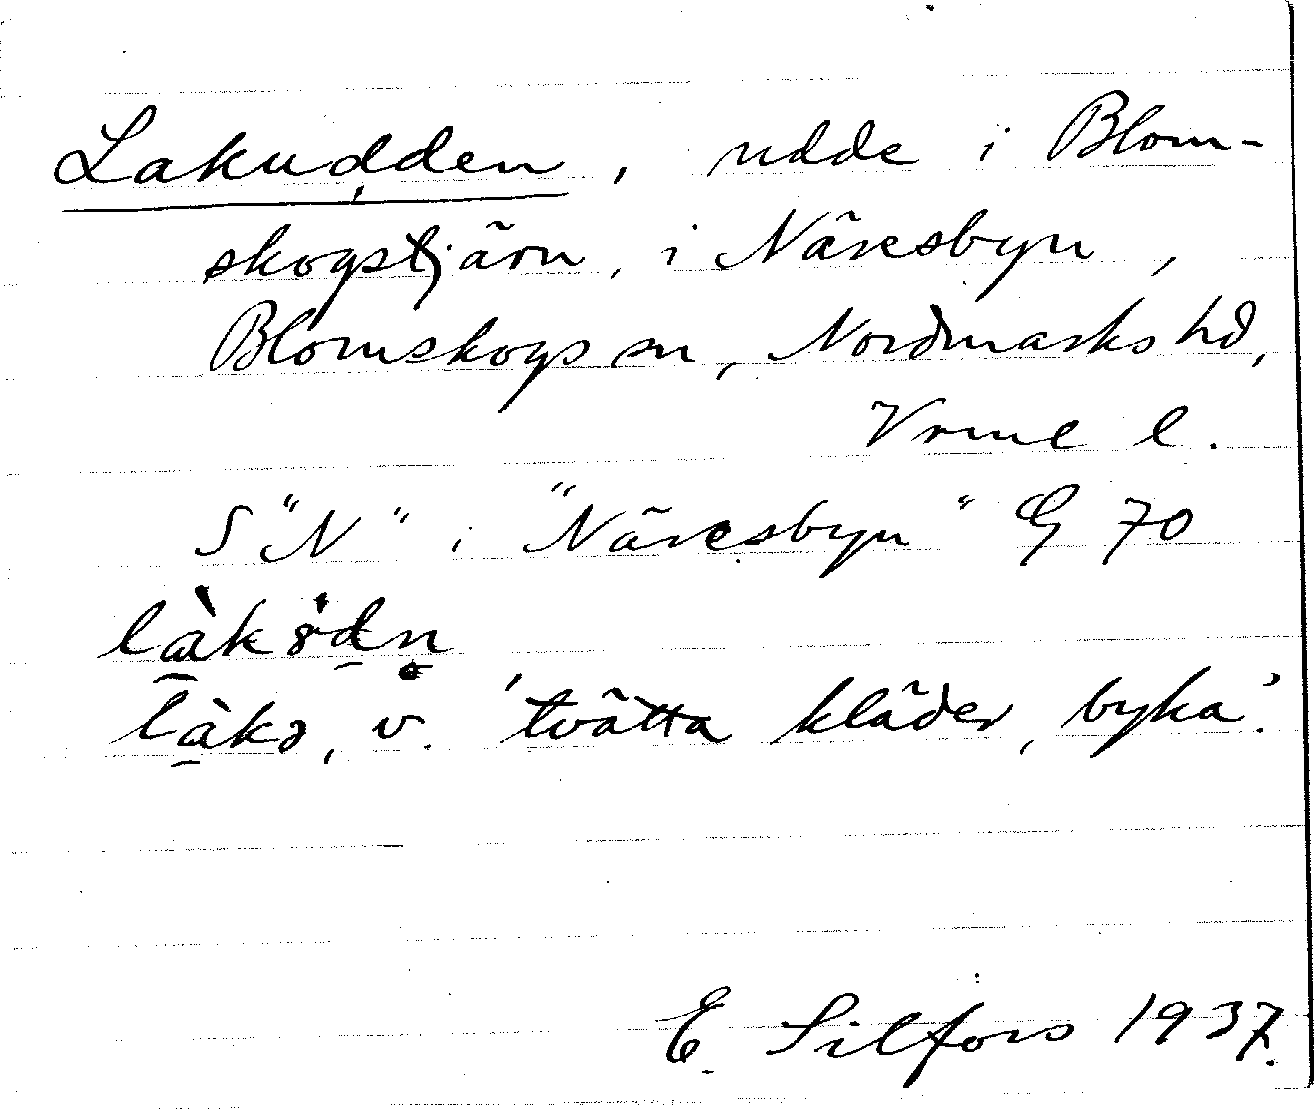 Lakudden, udde i Blom-
skogstjärn, i Näresbyn,
Blomskogs sn, Nordmarks hd,
Vrml l.
S "N" i "Näresbyn" G 70
làködn
làkə, v. 'tvätta kläder, byka'.
E. Silfors 1937.